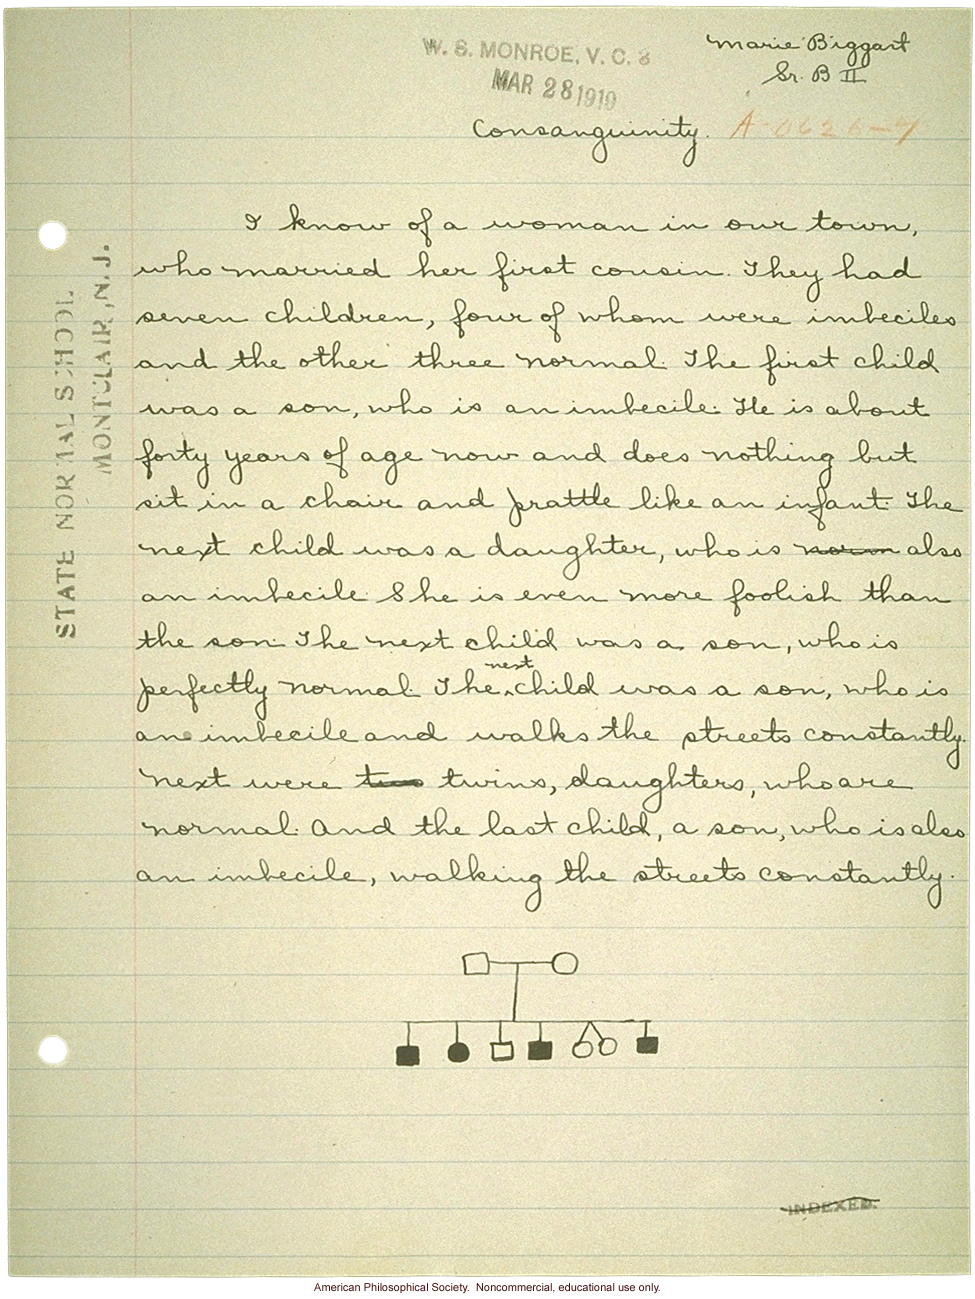 W. S. MONROE, V. C. S
MAR 28 1919
Marie Biggart
Sr. B II
Consanguinity.
A-0626-4
STATE NORMAL SCHOOL
MONTCLAIR, N. J.
I know of a woman in our town,
who married her first cousin. They had
seven children, four of whom were imbeciles
and the other three normal. The first child
was a son, who is an imbecile. He is about
forty years of age now and does nothing but
sit in a chair and prattle like an infant. The
next child was a daughter, who is norm also
an imbecile. She is even more foolish than
the son. The next child was a son, who is
perfectly normal. The next child was a son, who is
an imbecile and walks the streets constantly.
Next were two twins, daughters, who are
normal. And the last child, a son, who is also
an imbecile, walking the streets constantly.
INDEXED.
American Philosophical Society. Noncommercial, educational use only.